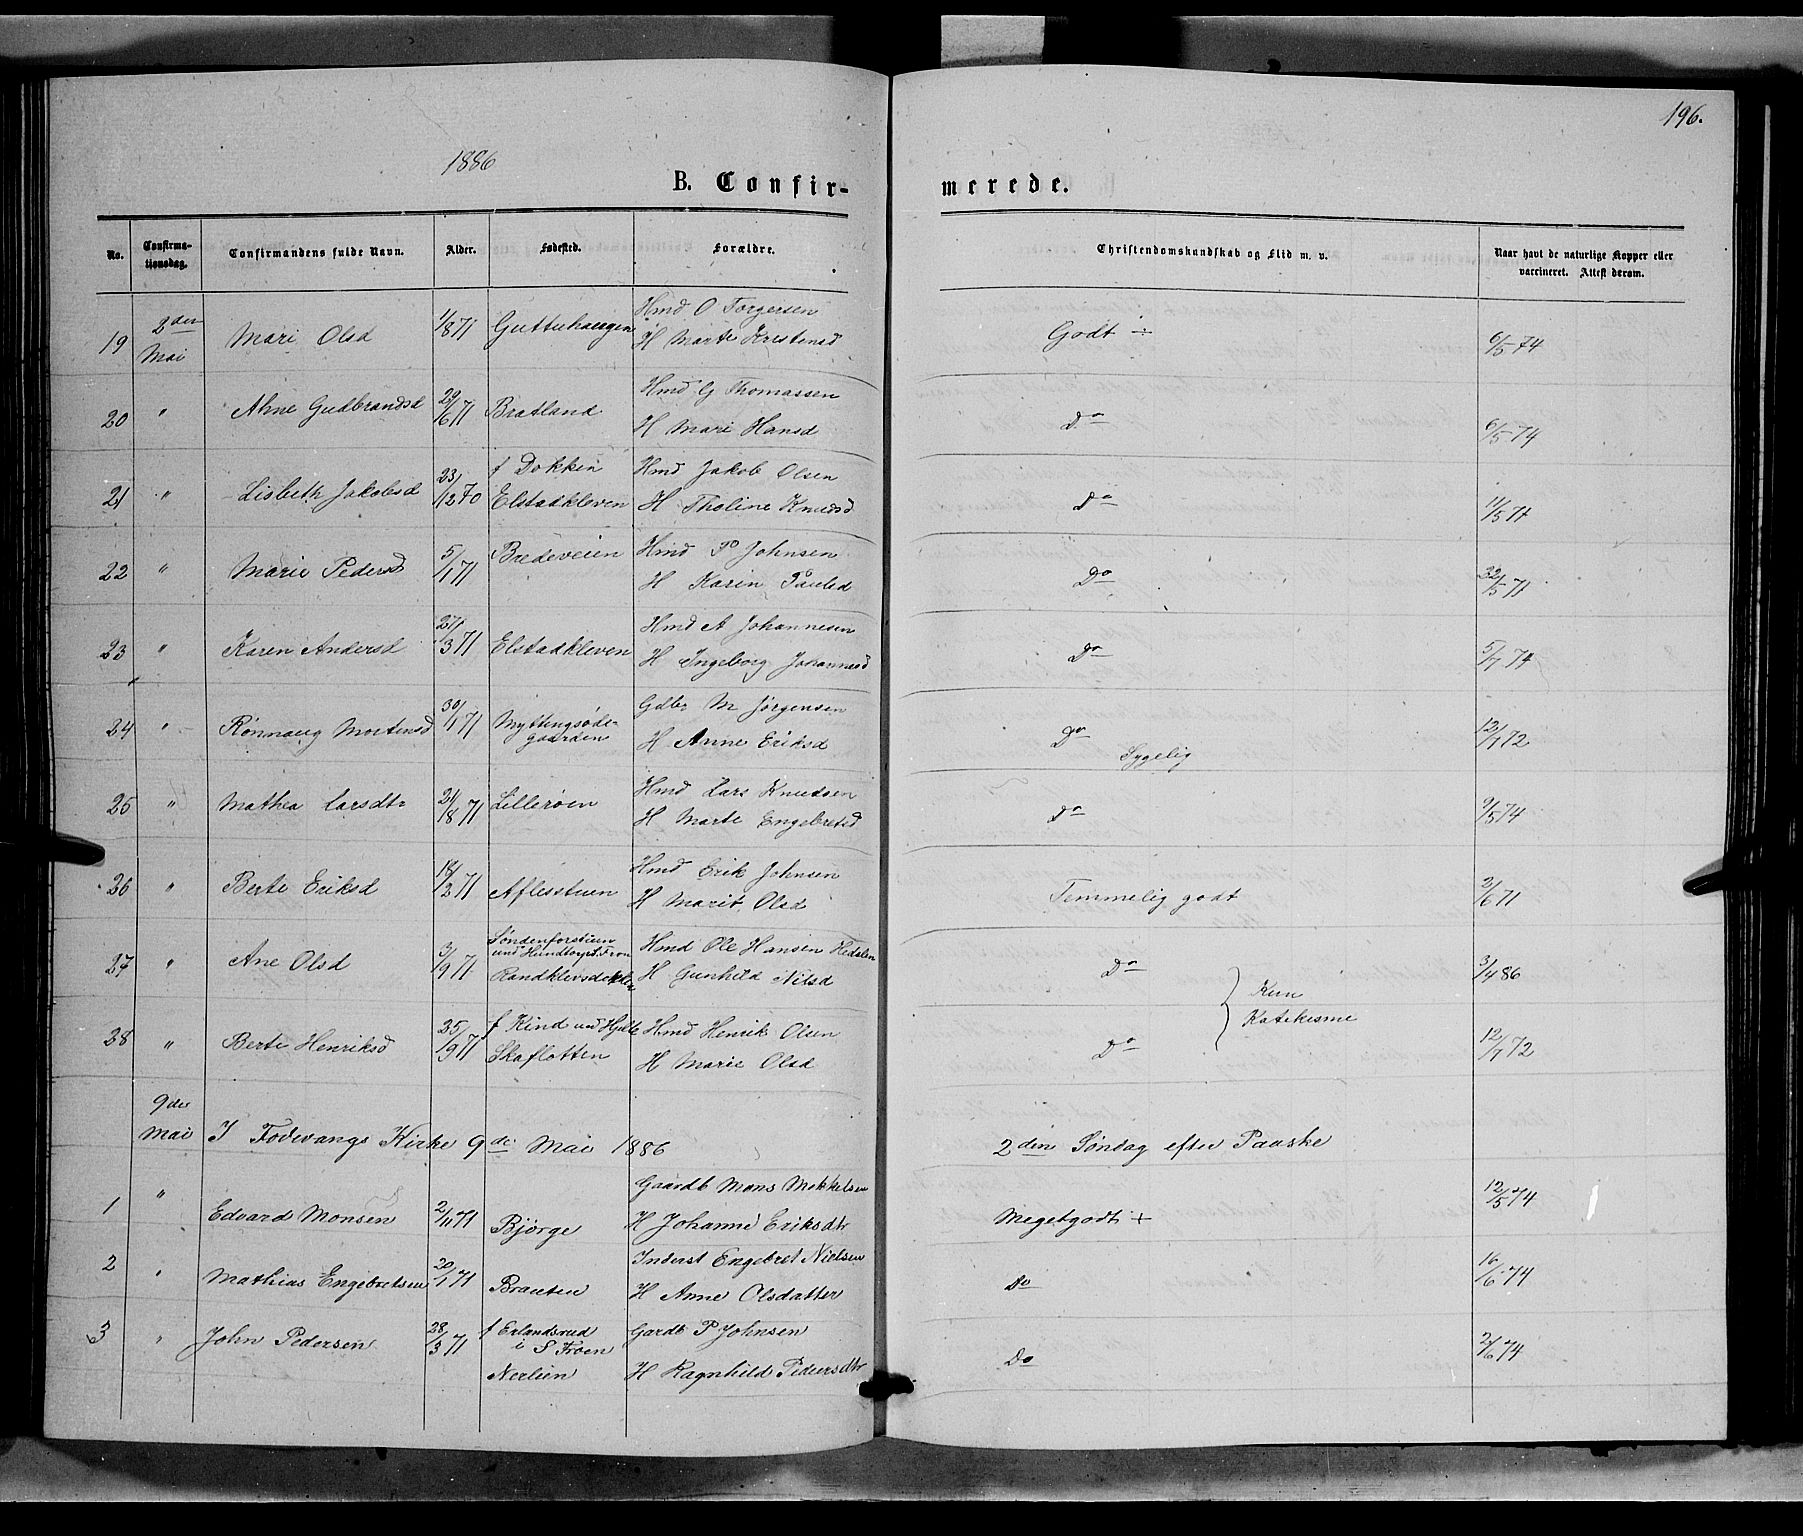 196.
1886
B. Confir-
merede.
No.
Confirma-
tionsdag.
Confirmandens fulde Navn.
Alder.
Fødested.
Forældre.
Christendomskundskab og Flid m. v.
Naar havt de naturlige Kopper eller
vaccineret. Attest derom.
19 2den Mai Mari Olsd 1/8 71 Guttuhaugen Hmd O Torgersen
H Marte Kristensd Godt ÷ 6/5 74
20 " Ahne Gudbrandsd 29/6 71 Bratland Hmd G Thomassen
H Mari Hansd Do 6/5 74
21 " Lisbeth Jakobsd 23/12 70 f Dokken Hmd Jakob Olsen
Elstadkleven H Tholine Knudsd Do 11/5 71
22 " Marie Pedersd 5/1 71 Bredeveien Hmd P Johnsen
H Karin Paulsd Do /5 71
23 " Karen Andersd 27/3 71 Elstadkleven Hmd A Johannesen
H Ingeborg Johannesd Do 5/7 74
24 " Rønnaug Mortensd 30/1 71 Myttingsøde- Gdbr M Jørgensen
gaarden H Anne Eriksd Do 12/7 72
Sygelig
25 " Mathea Larsdtr 21/8 71 Lillerøen Hmd Lars Knudsen
H Marte Engebretsd Do 9/5 74
26 " Berte Eriksd 18/2 71 Aflesstuen Hmd Erik Johnsen
H Marit Olsd Temmelig godt 2/6 71
27 " Ane Olsd 3/9 71 Søndenforstuen
und Hundtorp S. Fron Hmd Ole Hansen Hedalen
Randklevsdokken H Gunhild Nilsd Do 3/4 86
Kun
Katekisme
28 " Berte Henriksd 25/9 71 f Kind und Hjelle Hmd Henrik Olsen
Skaflotten H Marie Olsd Do 12/7 72
9de Mai I Fodvangs Kirke 9de Mai 1886 2den Søndag efter Paaske
1 " Edvard Monsen 2/11 71 Bjørge Gaardb Mons Mokkelsen
H Johanne Eriksdtr Megetgodt + 12/5 74
2 " Mathias Engebretsen 20/1 71 Brauten Inderst Engebret Nielsen
H Anne Olsdatter Do 16/6 74
3 " John Pedersen 28/3 71 f Erlandsrud
i S Froen Gardb P Johnsen
Nerlien H Ragnhild Pedersdtr Do 2/6 74